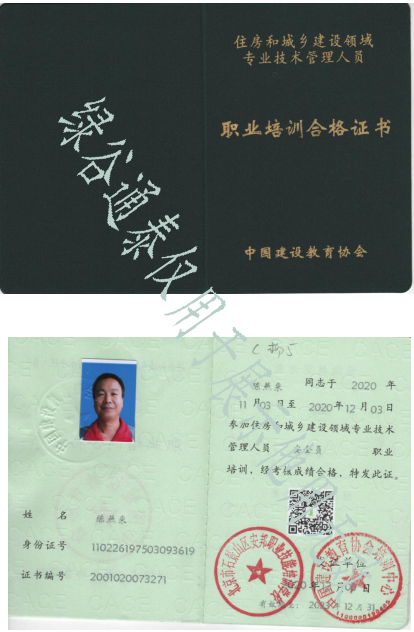 住房和城乡建设领域
专业技术管理人员
职业培训合格证书
中国建设教育协会
绿谷通泰仅用于展示使用
陈燕来 同志于 2020 年
11 月 03 日至 2020年12月03日
参加住房和城乡建设领域专业技术
管理人员 安全员 职业
培训，经考核成绩合格，特发此证。
姓 名 陈燕来
身份证号 110226197503093619
证书编号 2001020073271
北京市石景山区安邦职业技能培训学校
发证单位
2020年12月
有效期至：2023年12月31日